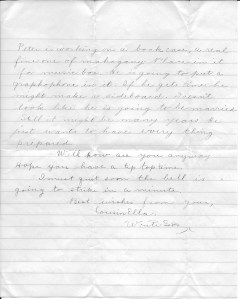 Peter is working on a book case, a real
fine one of mahogany. There is in it
for music box. He is going to put a
graphophone in it. If he gets time he
might make a sideboard. Don't
look like he is going to be married
Still it might be many years. He
just wants to have every thing
prepared.
Well how are you anyway
Hope you have a tip top time.
I must quit soon the bell is
going to strike in a minute
Best wishes from yours,
Cousin Ella.
Write soon